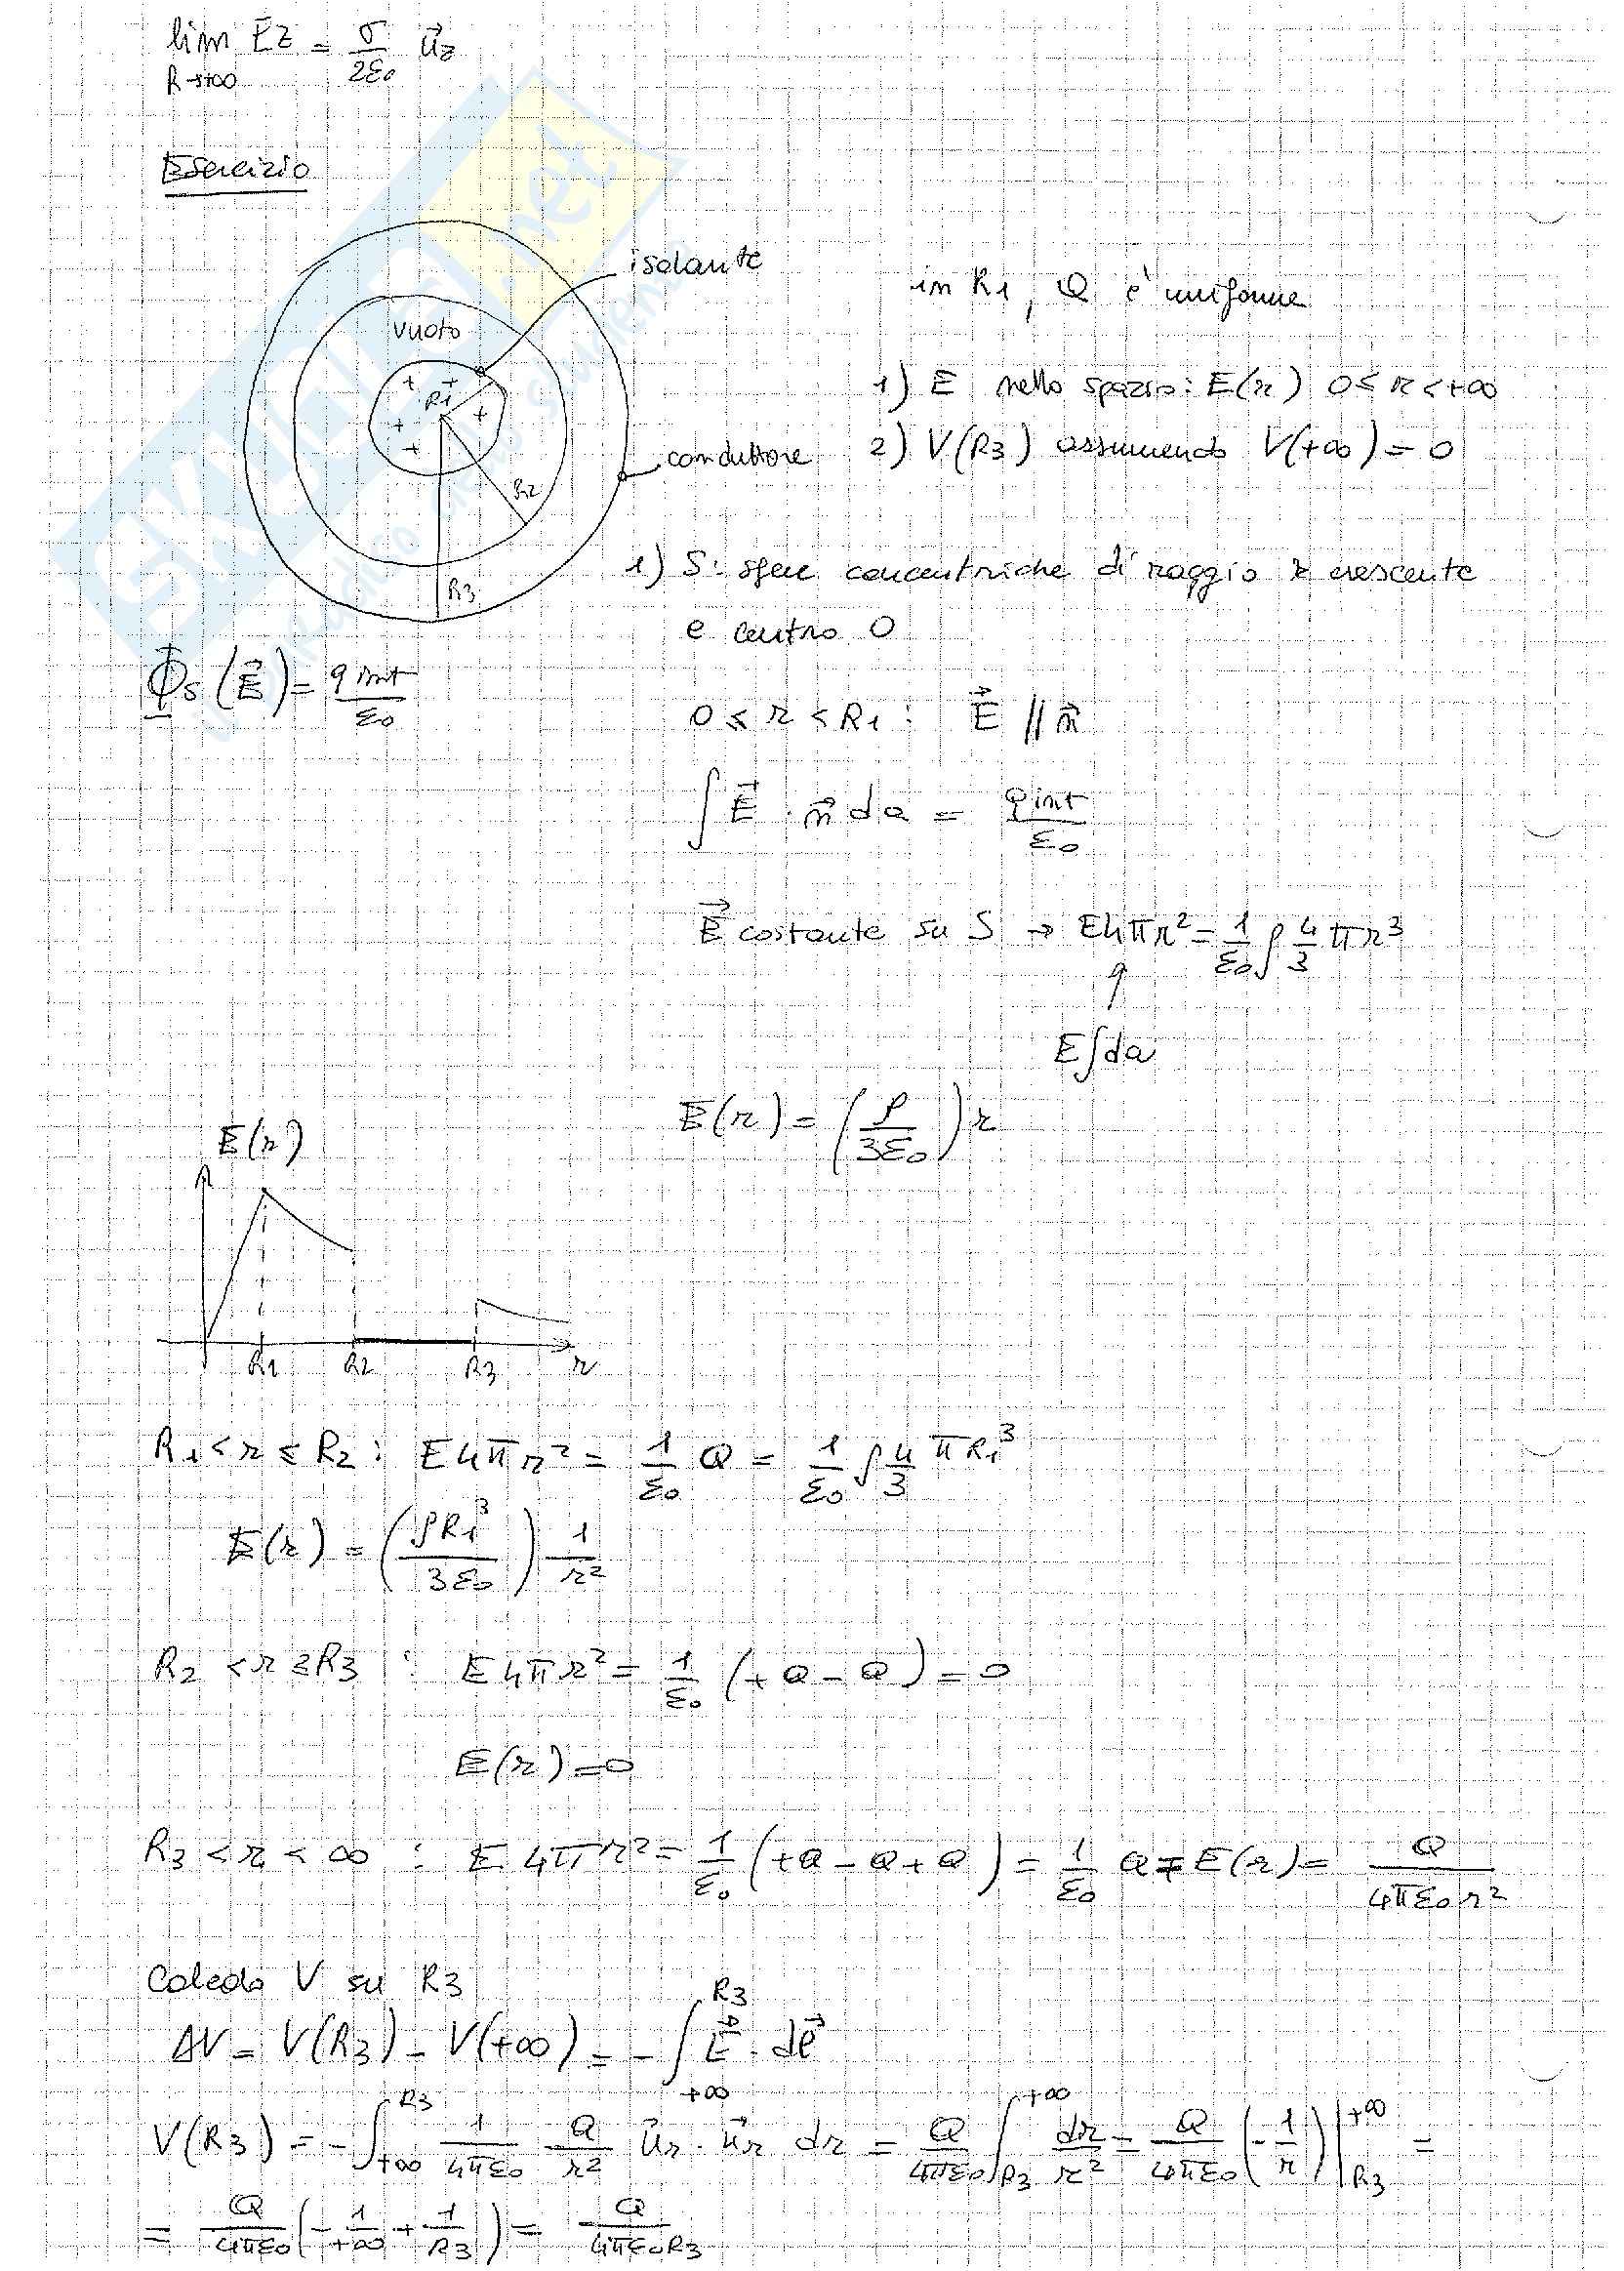 lim Ez = σ/2ε0 u⃗z
R→+∞
Esercizio
isolante
in R1, Q è uniforme
vuoto
+ + + + +
R1
1) E nello spazio: E(r) 0 ≤ r < +∞
conduttore
2) V(R3) assumendo V(+∞) = 0
R2
R3
1) S: sfere concentriche di raggio r crescente
e centro O
Φs(E⃗) = qint/ε0
0 ≤ r ≤ R1 : E⃗ // n⃗
∫ E⃗ · n⃗ da = qint/ε0
E⃗ costante su S → E4πr² = 1/ε0 ρ 4/3 πr³
↑
E∫da
E(r) = (ρ/3ε0) r
E(r)
R1 R2 R3 r
R1 < r ≤ R2 : E4πr² = 1/ε0 Q = 1/ε0 ρ 4/3 πR1³
E(r) = (ρR1³/3ε0) 1/r²
R2 < r ≤ R3 : E4πr² = 1/ε0 (+Q-Q) = 0
E(r) = 0
R3 < r < ∞ : E4πr² = 1/ε0 (+Q-Q+Q) = 1/ε0 Q = E(r) = Q/4πε0r²
Calcolo V su R3
ΔV = V(R3) - V(+∞) = - ∫_{+∞}^{R3} E⃗ · dℓ⃗
V(R3) = - ∫_{+∞}^{R3} 1/4πε0 Q/r² u⃗r · u⃗r dr = Q/4πε0 ∫_{R3}^{+∞} dr/r² = Q/4πε0 (-1/r)|_{R3}^{+∞} =
= Q/4πε0 (-1/+∞ + 1/R3) = Q/4πε0R3